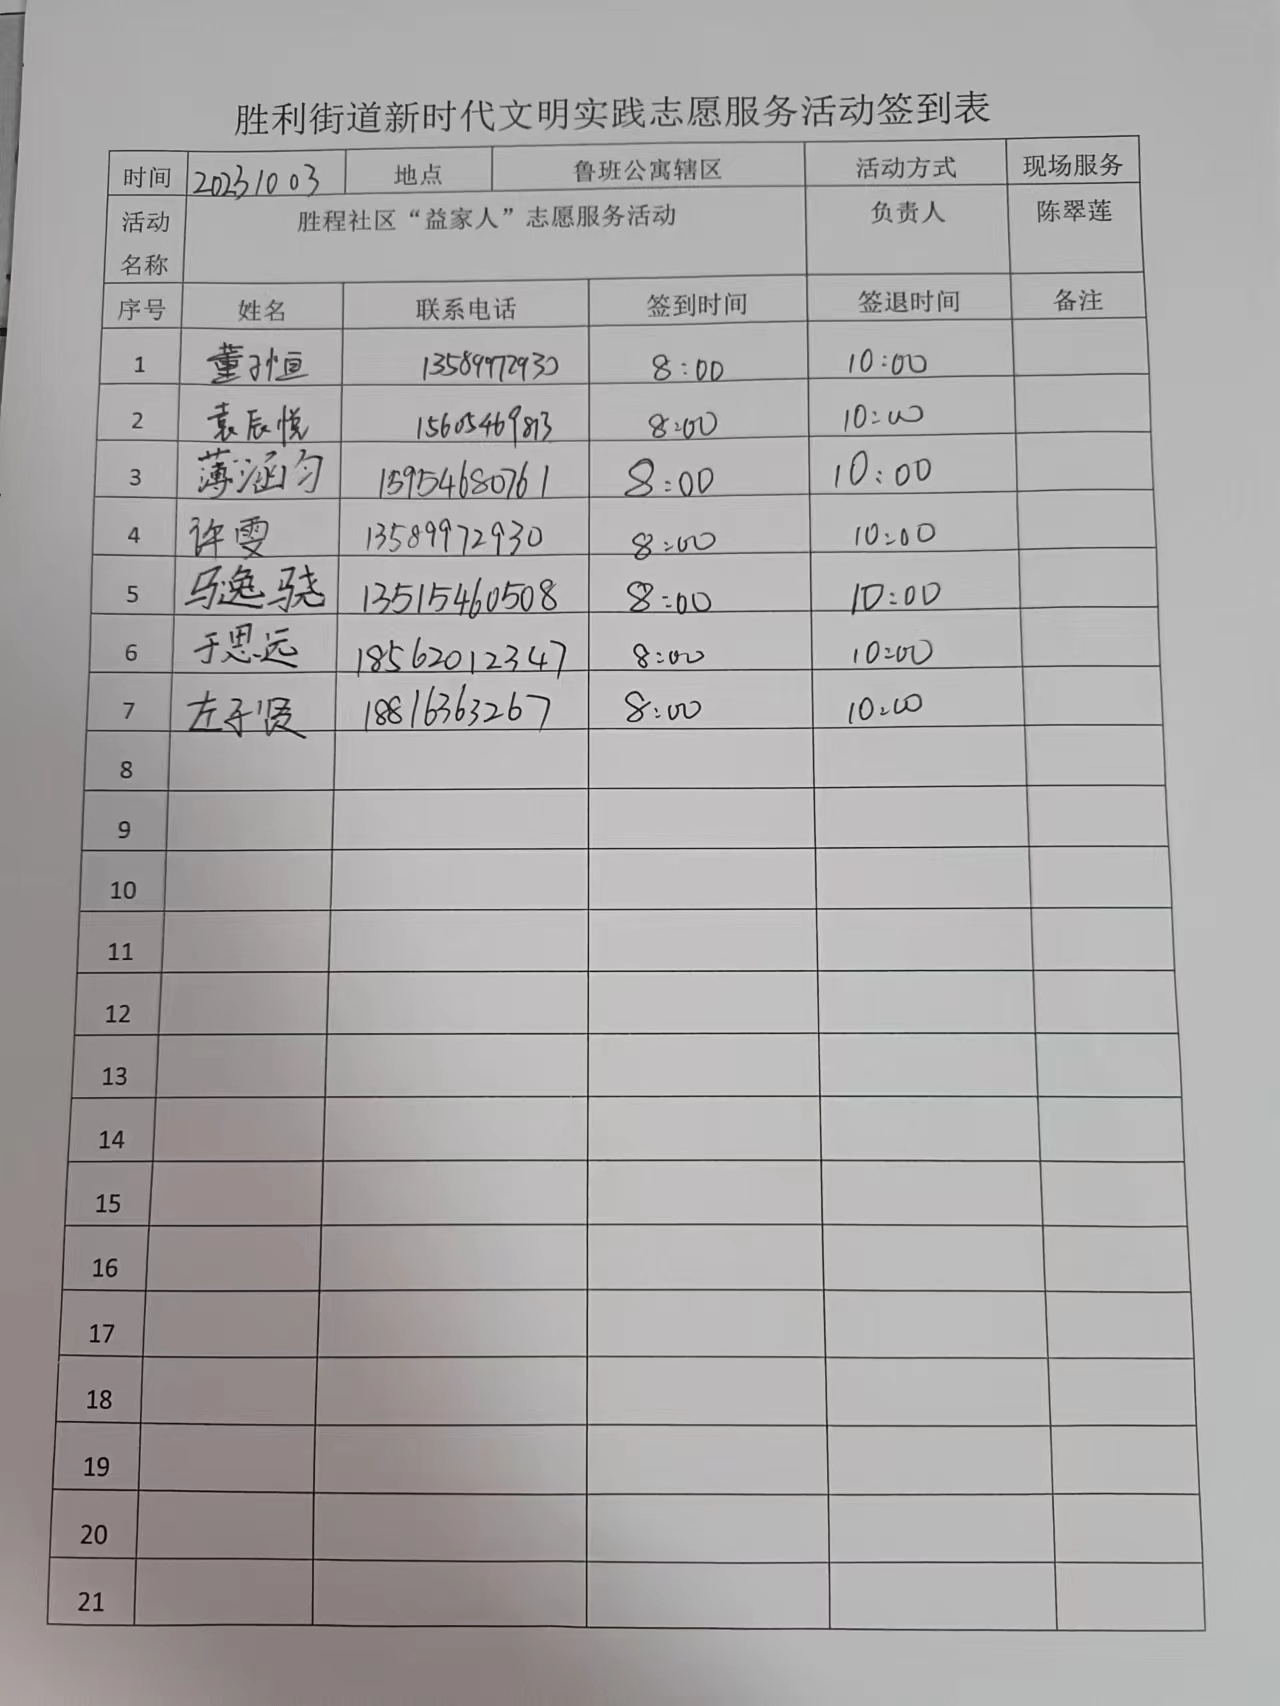 胜利街道新时代文明实践志愿服务活动签到表
时间 20231003 地点 鲁班公寓辖区 活动方式 现场服务
活动名称 胜程社区“益家人”志愿服务活动 负责人 陈翠莲
序号 姓名 联系电话 签到时间 签退时间 备注
1 董子恒 13589972930 8:00 10:00
2 袁辰悦 15605469813 8:00 10:00
3 薄涵匀 15954680761 8:00 10:00
4 许雯 13589972930 8:00 10:00
5 马逸骁 13515460508 8:00 10:00
6 于思远 18562012347 8:00 10:00
7 左子贤 18816363267 8:00 10:00
8
9
10
11
12
13
14
15
16
17
18
19
20
21